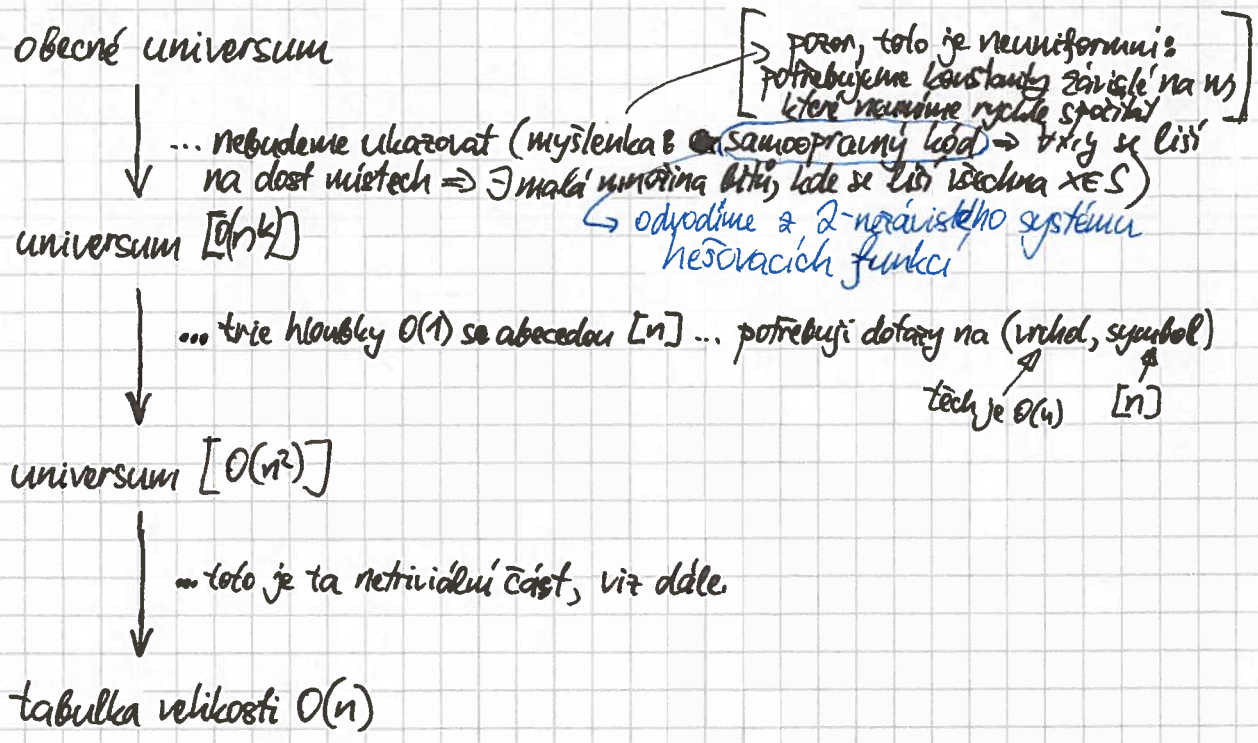 obecné universum
[pozor, toto je neuniformní:
potřebujeme konstanty závislé na w,
které neumíme rychle spočítat]
... nebudeme ukazovat (myšlenka: samoopravný kód ⇒ ∀x,y se liší
na dost místech ⇒ ∃ malá množina bitů, kde se liší všechna x∈S)
↳ odvodíme z 2-nezávislého systému
hešovacích funkcí
universum [O(n^k)]
... trie hloubky O(1) se abecedou [n] ... potřebuji dotazy na (vrchol, symbol)
těch je O(n) [n]
universum [O(n²)]
... toto je ta netriviální část, viz dále.
tabulka velikosti O(n)